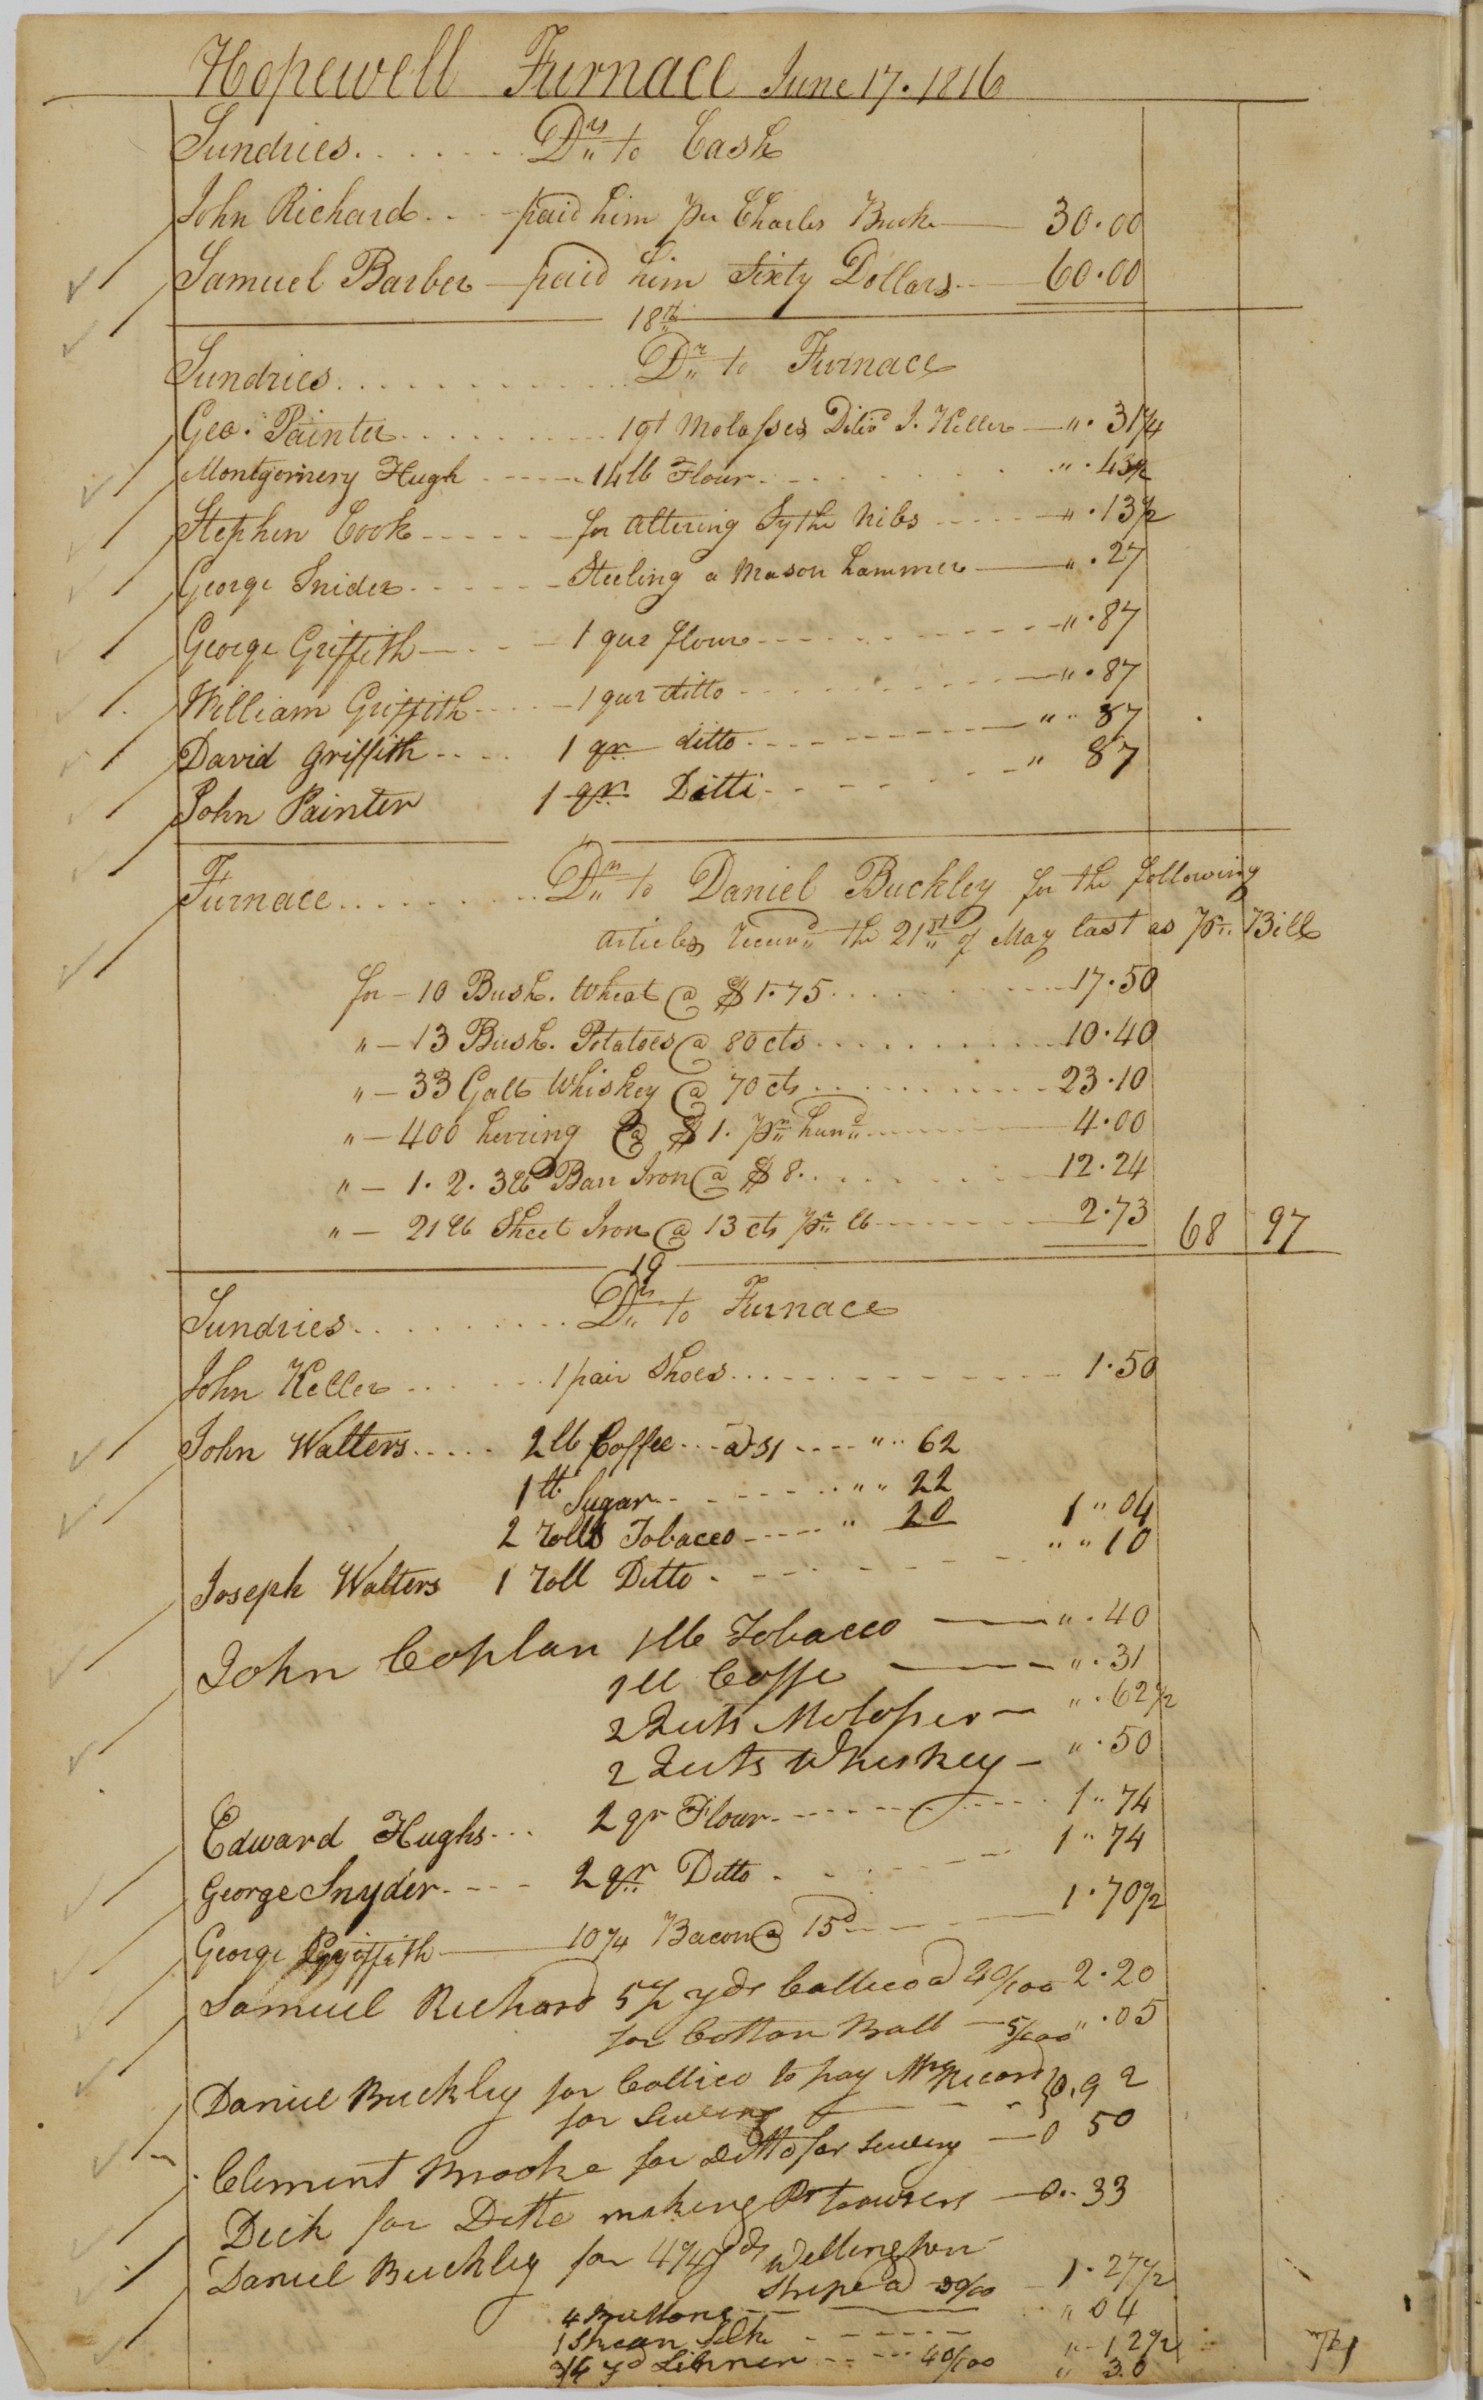 Hopewell Furnace June 17. 1816
Sundries. . . . . . . Drs to Cash
John Richard. . . paid him per Charles Buck — 30.00
Samuel Barber — paid him Sixty Dollars — 60.00
18th
Sundries. . . . . . . . . . . Dr to Furnace
Geo. Painter. . . . . . . . . 1 qt Molasses Deliv'd J. Keller — ". 31 1/4
Montgomery Hugh - - - - - 14 lb Flour. . . . . . . ". 43 1/2
Stephen Cook - - - - - for Altering Sythe Nibs - - - - ". 13 1/2
George Snider. - - - - Steeling a Mason hammer — ". 27
George Griffith — - - - 1 qur flour - - - - - - - ". 87
William Griffith - - - - 1 qur ditto - - - - - - - ". 87
David Griffith - - - - 1 qr ditto - - - - - - " " 87
John Painter 1 qr Ditti - - - - - - " 87
"
Furnace. . . . . . . . . Dr to Daniel Buckley for the following
articles receivd the 21st of May last as pr Bill
for — 10 Bush. Wheat @ $ 1.75. . . . . . . 17.50
" — 13 Bush. Potatoes @ 80 cts. . . . . . . 10.40
" — 33 Galls Whiskey @ 70 cts. . . . . . . 23.10
" — 400 herring @ $ 1. pr hund - - - - - 4.00
" — 1. 2. 3 lb Barr Iron @ $ 8. . . . . . . 12.24
" — 21 lb Sheet Iron @ 13 cts pr lb - - - - - 2.73 68 97
19
Sundries. . . . . . . . . . Drs to Furnace
John Keller. . . . . . . 1 pair Shoes. . . . . . . . . 1.50
John Walters. . . . . 2 lb Coffee - - - a 31 - - - - " " 62
1 lb Sugar - - - - - - - " " 22
2 rolls Tobacco - - - - - " 20 1 " 04
Joseph Walters 1 roll Ditto - - - - - - - " " 10
John Coplan 1 lb Tobacco — ". 40
1 lb Coffe — ". 31
2 Quts Molasses — ". 62 1/2
2 Quts Whiskey — ". 50
Edward Hughs. . . 2 qr Flour - - - - - - - 1 " 74
George Snyder. - - - 2 qr Ditto - - - - - 1 " 74
George Griffith — 10 1/4 Bacon @ 15d - - - 1.70 1/2
Samuel Richard 5 1/2 yds Callico a 40/100 2.20
for Cotton Ball — 5/100 ". 05
Daniel Buckley for Callico to pay Mrs Ricard
for sewing — - - 0.92
Clement Brooke for Ditto for sewing — 0 50
Dick for Ditto making Pr trowsers — 0.. 33
Daniel Buckley for 4 1/4 yds Wellington
Stripe a 30/100 — 1.27 1/2
4 Buttons — " 04
1 Skean Silk - - - - - " - 12 1/2
3/4 yd Linnen - - - - 40/100 " 30